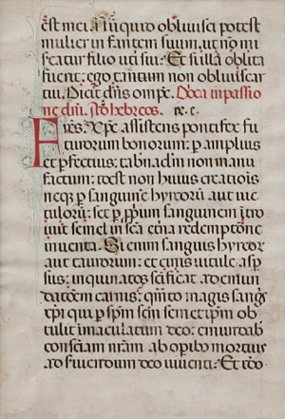 est mei. Nunquid oblivisci potest
mulier infantem suum, ut no mi
seatur filio uteri sui. Et si illa oblita
fuerit: ego tamen non obliviscar
tui. Dicit dns omps. Dnica in passio
ne dni. Ad hebreos. ix. c.
Fres. Xpc assistens pontifex fu
turorum bonorum: p amplius
et pfectius tabnaclm non manu
factum: idest non huius creatiois
neq; p sanguine hyrcoru aut vic
tulorum: set p ppium sanguinem itro
ivit semel in sca etna redemptione
inventa. Si enim sanguis hyrcor
aut taurorum: et cinis vitule asp
sus: inquinatos scificat ad emun
datoem carnis: quato magis sangs
xpi qui p spm scm semetipm ob
tulit imaculatum deo: emundab
consciam nram ab opibus mortuis
ad serviendum deo viventi. Et ideo